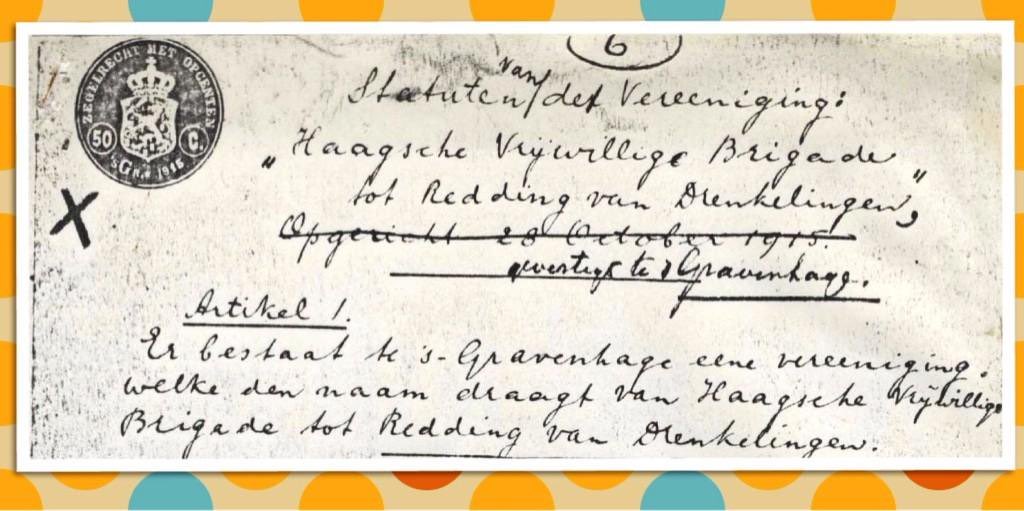 6
ZEGELRECHT MET OPCENTEN
50 C.
Statuten van der Vereeniging:
„Haagsche Vrijwillige Brigade
tot Redding van Drenkelingen",
Opgericht 28 October 1915.
gevestigd te s Gravenhage.
X
Artikel 1.
Er bestaat te 's-Gravenhage eene vereeniging.
welke den naam draagt van Haagsche Vrijwillige
Brigade tot Redding van Drenkelingen.